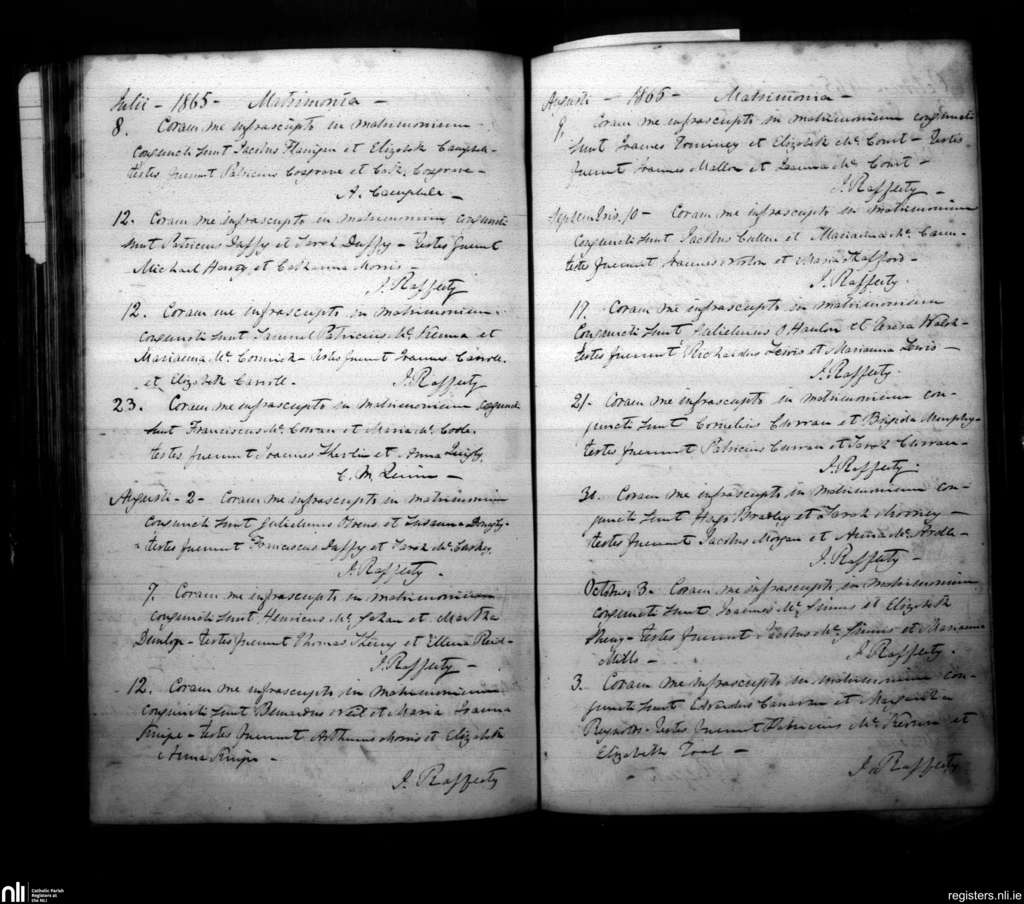 Julii - 1865 - Matrimonia -
8. Coram me infrascripto in matrimonium
conjuncti sunt Jacobus Flanigan et Elizabeth Campbell
testes fuerunt Patricius Cosgrove et Cath. Cosgrave -
A. Campbell -
12. Coram me infrascripto in matrimonium conjuncti
sunt Patricius Duffy et Sarah Duffy - testes fuerunt
Michael Harvey et Catharina Morris -
J. Rafferty
12. Coram me infrascripto in matrimonium
conjuncti sunt Patricius Mc Kenna et
Marianna Mc Cormick - testes fuerunt Joannes Carroll
et Elizabeth Carroll. J. Rafferty
23. Coram me infrascripto in matrimonium conjuncti
sunt Franciscus Mc Corran et Maria Mc Coole
testes fuerunt Joannes et Anna Quigly.
C. M. Quinn -
Augusti - 2 - Coram me infrascripto in matrimonium
conjuncti sunt Gulielmus Owens et Susanna
testes fuerunt Franciscus Duffy et Sarah Mc
J. Rafferty -
7. Coram me infrascripto in matrimonium
conjuncti sunt Henricus Mc Gahan et Martha
Dunlop - testes fuerunt Thomas et Ellena Reid -
J. Rafferty -
12. Coram me infrascripto in matrimonium
conjuncti sunt Bernardus Neil et Maria Joanna
Knipe - testes fuerunt Arthurus Morris et Elizabeth
Anna Knipe -
J. Rafferty
Augusti - 1865 - Matrimonia -
9. Coram me infrascripto in matrimonium conjuncti
sunt Joannes Tominey et Elizabeth Mc Court - testes
fuerunt Joannes Mallon et Joanna Mc Court -
J. Rafferty -
Septembris. 10 - Coram me infrascripto in matrimonium
conjuncti sunt Jacobus Cullen et Marianna Mc Cann -
testes fuerunt Joannes Norton et Maria Stafford -
J. Rafferty.
17. Coram me infrascripto in matrimonium
conjuncti sunt Gulielmus O Hanlon et Teresa Walsh -
testes fuerunt Richardus Lewis et Marianna Lewis -
J. Rafferty.
21. Coram me infrascripto in matrimonium con-
juncti sunt Cornelius Curran et Brigida Murphy -
testes fuerunt Patricius Curran et Sarah Curran -
J. Rafferty.
30. Coram me infrascripto in matrimonium con-
juncti sunt Hugo Bradley et Sarah Mooney -
testes fuerunt Jacobus Morgan et Anna Mc Ardle -
J. Rafferty -
October 3. Coram me infrascripto in matrimonium
conjuncti sunt Joannes Mc Ginnis et Elizabeth
- testes fuerunt Jacobus Mc Ginnis et Marianna
Mills - J. Rafferty.
3. Coram me infrascripto in matrimonium con-
juncti sunt Edwardus Canavan et Margarita
Reynolds - testes fuerunt Patricius Mc et
Elizabeth Toal -
J. Rafferty
nli
Catholic Parish
Registers at
the NLI
registers.nli.ie